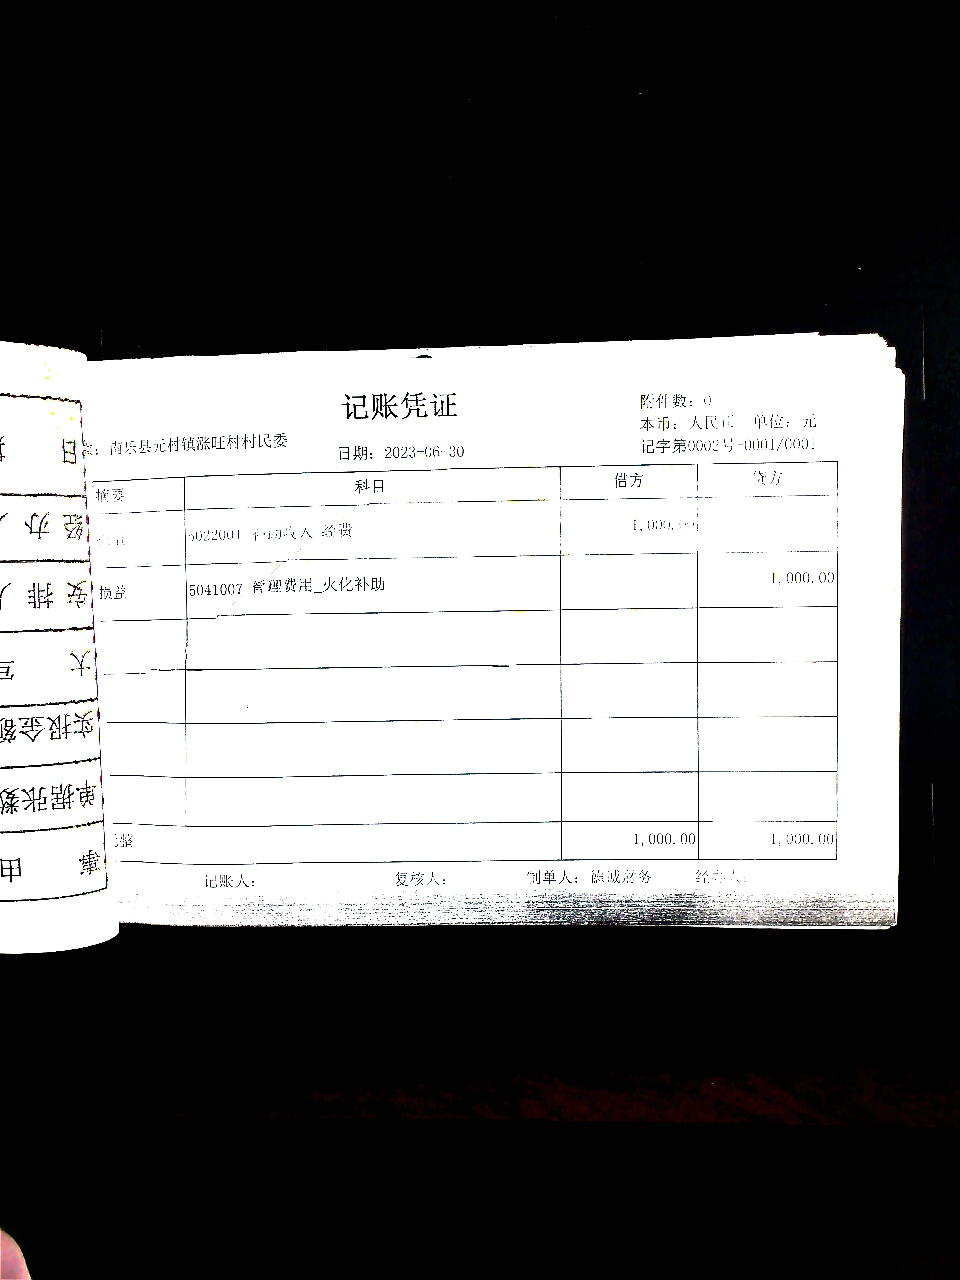 记账凭证
附件数：0
本币：人民币 单位：元
南乐县元村镇涨旺村村民委
日期：2023-06-30
记字第0002号-0001/0001
摘要 科目 借方 贷方
5022001 补助收入_经费 1,000.00
损益 5041007 管理费用_火化补助 1,000.00
整 1,000.00 1,000.00
记账人： 复核人： 制单人：德诚财务 经办人：
日
经办人
安排人
大
实报金额
单据张数
事由